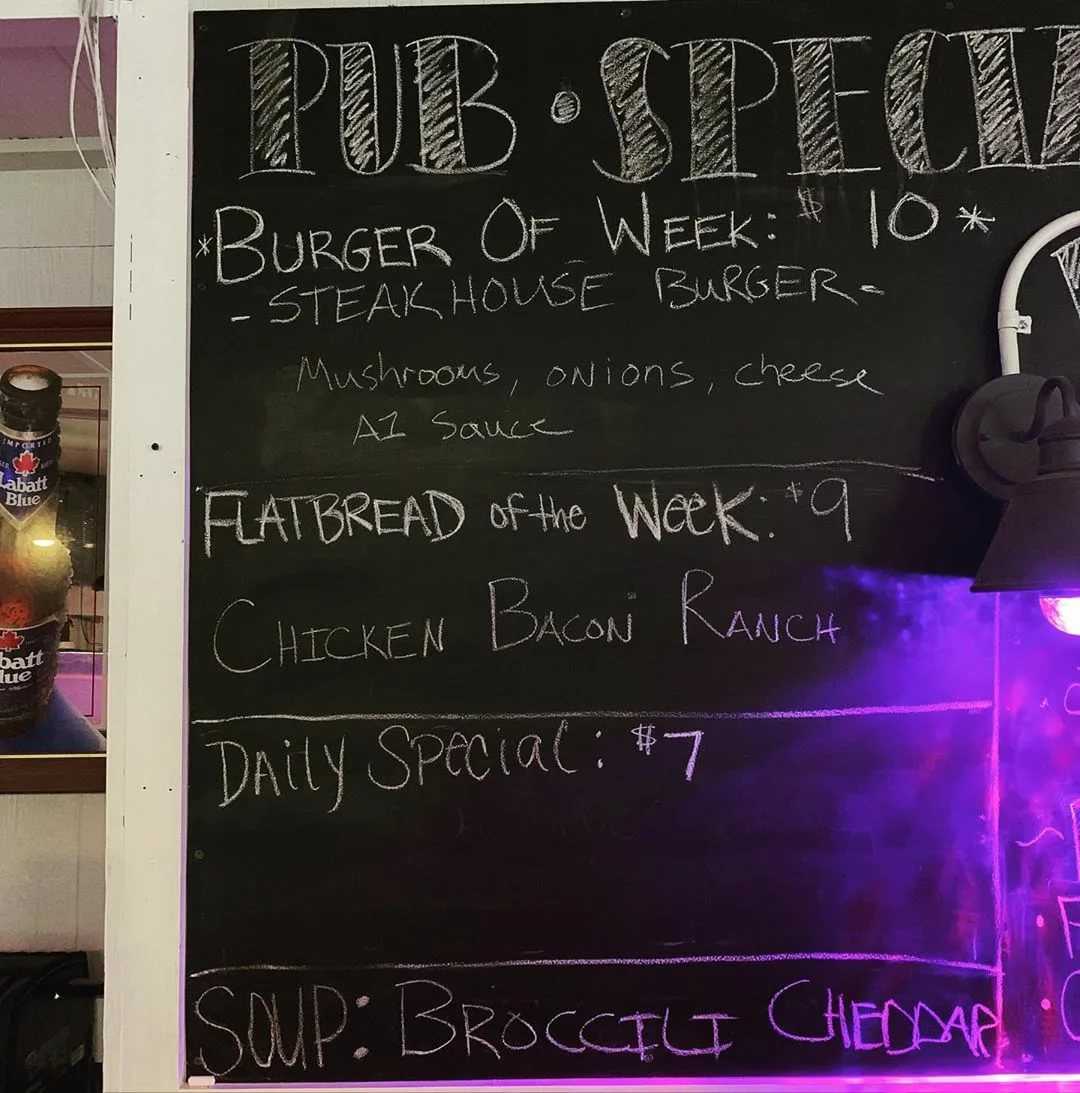 PUB • SPECIA
*BURGER OF WEEK: $ 10 *
- STEAKHOUSE BURGER -
Mushrooms, onions, cheese
A1 Sauce
FLATBREAD of the Week: $9
CHICKEN BACON RANCH
Daily Special: $7
SOUP: BROCCILI CHEDDAR
IMPORTED
Labatt
Blue
batt
lue